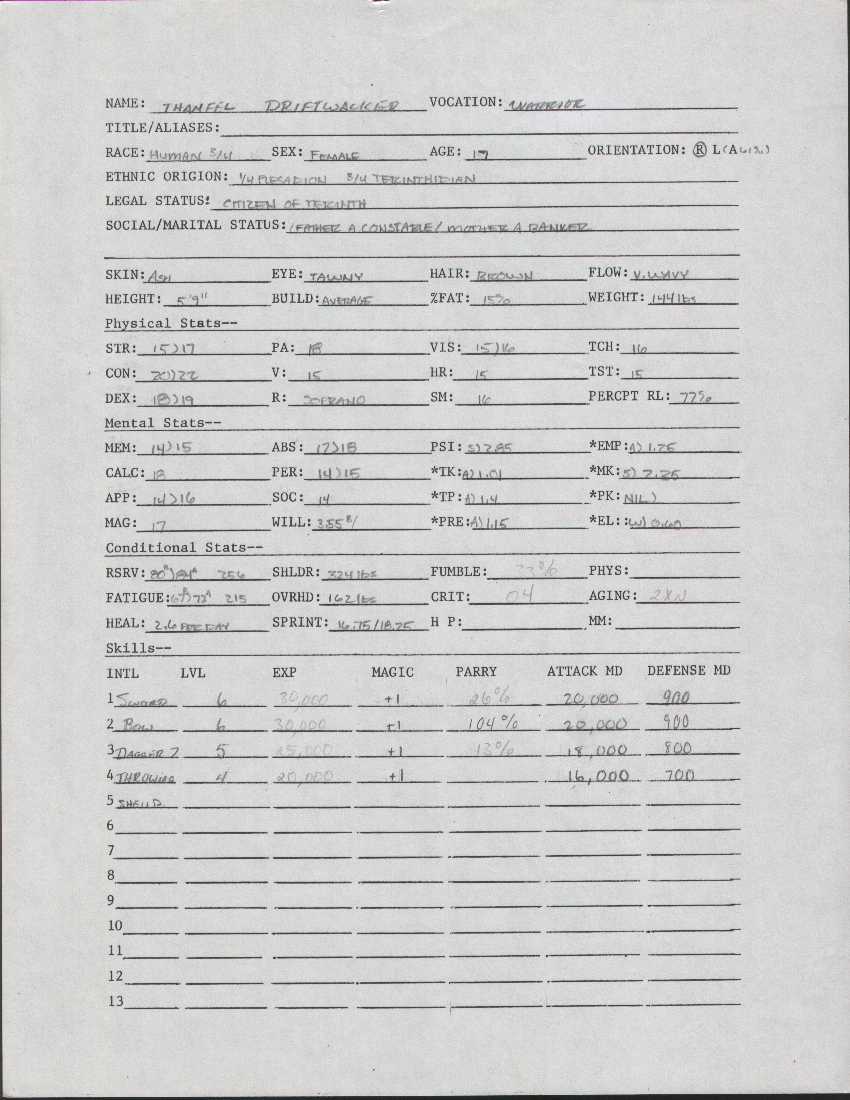 NAME: THANFEL DRIFTWALKER VOCATION: WARRIOR
TITLE/ALIASES:
RACE: HUMAN 3/4 SEX: FEMALE AGE: 19 ORIENTATION: R L(A
ETHNIC ORIGION: 1/4 3/4 TERINTHIDIAN
LEGAL STATUS: CITIZEN OF TERINTH
SOCIAL/MARITAL STATUS: /FATHER A CONSTABLE/ MOTHER A BANKER
SKIN: ASH EYE: TAWNY HAIR: BROWN FLOW: V.WAVY
HEIGHT: 5'9" BUILD: AVERAGE %FAT: 15% WEIGHT: 144 lbs
Physical Stats--
STR: 15)17 PA: 18 VIS: 15)16 TCH: 16
CON: 20)22 V: 15 HR: 15 TST: 15
DEX: 18)19 R: SOPRANO SM: 16 PERCPT RL: 77%
Mental Stats--
MEM: 14)15 ABS: 17)18 PSI: S)2.85 *EMP: A) 1.25
CALC: 18 PER: 14)15 *TK: A)1.01 *MK: S) 2.25
APP: 14)16 SOC: 14 *TP: A) 1.4 *PK: NIL)
MAG: 17 WILL: *PRE: A)1.15 *EL: : W) 0.60
Conditional Stats--
RSRV: 256 SHLDR: 324 lbs FUMBLE: 33% PHYS:
FATIGUE: 215 OVRHD: 162 lbs CRIT: 04 AGING: 2XN
HEAL: 2.6 PER DAY SPRINT: 16.75/18.75 H P: MM:
Skills--
INTL LVL EXP MAGIC PARRY ATTACK MD DEFENSE MD
1 SWORD 6 30,000 +1 26% 20,000 900
2 BOW 6 30,000 +1 104% 20,000 900
3 DAGGER 2 5 25,000 +1 13% 18,000 800
4 THROWING 4 20,000 +1 16,000 700
5 SHEILD
6
7
8
9
10
11
12
13